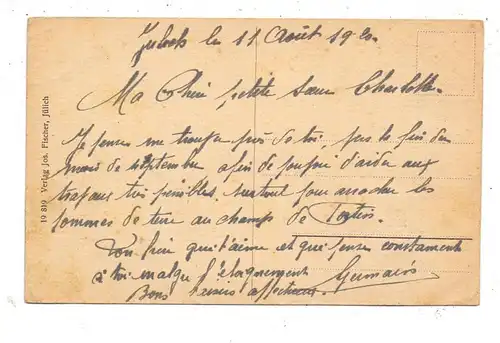 le 11 Août 19
Ma Chère petite Soeur Charlotte
Je pense me trouver près de toi, pas la fin du
mois de septembre afin de pouvoir d'aider aux
travaux très pénibles, surtout pour arracher les
pommes de terre au champs de
Ton frère qui t'aime et que pense constamment
à toi malgré l'éloignement
Bons baisers affectueux Germain
19 819 Verlag Jos. Fischer, Jülich